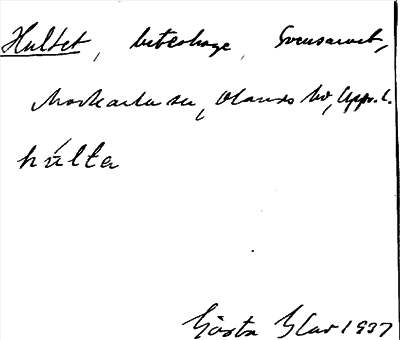 Hultet, beteshage, Svensarvet,
Markarla sn, Olands hd, Upps. l.
húlta
Gösta Blar 1937